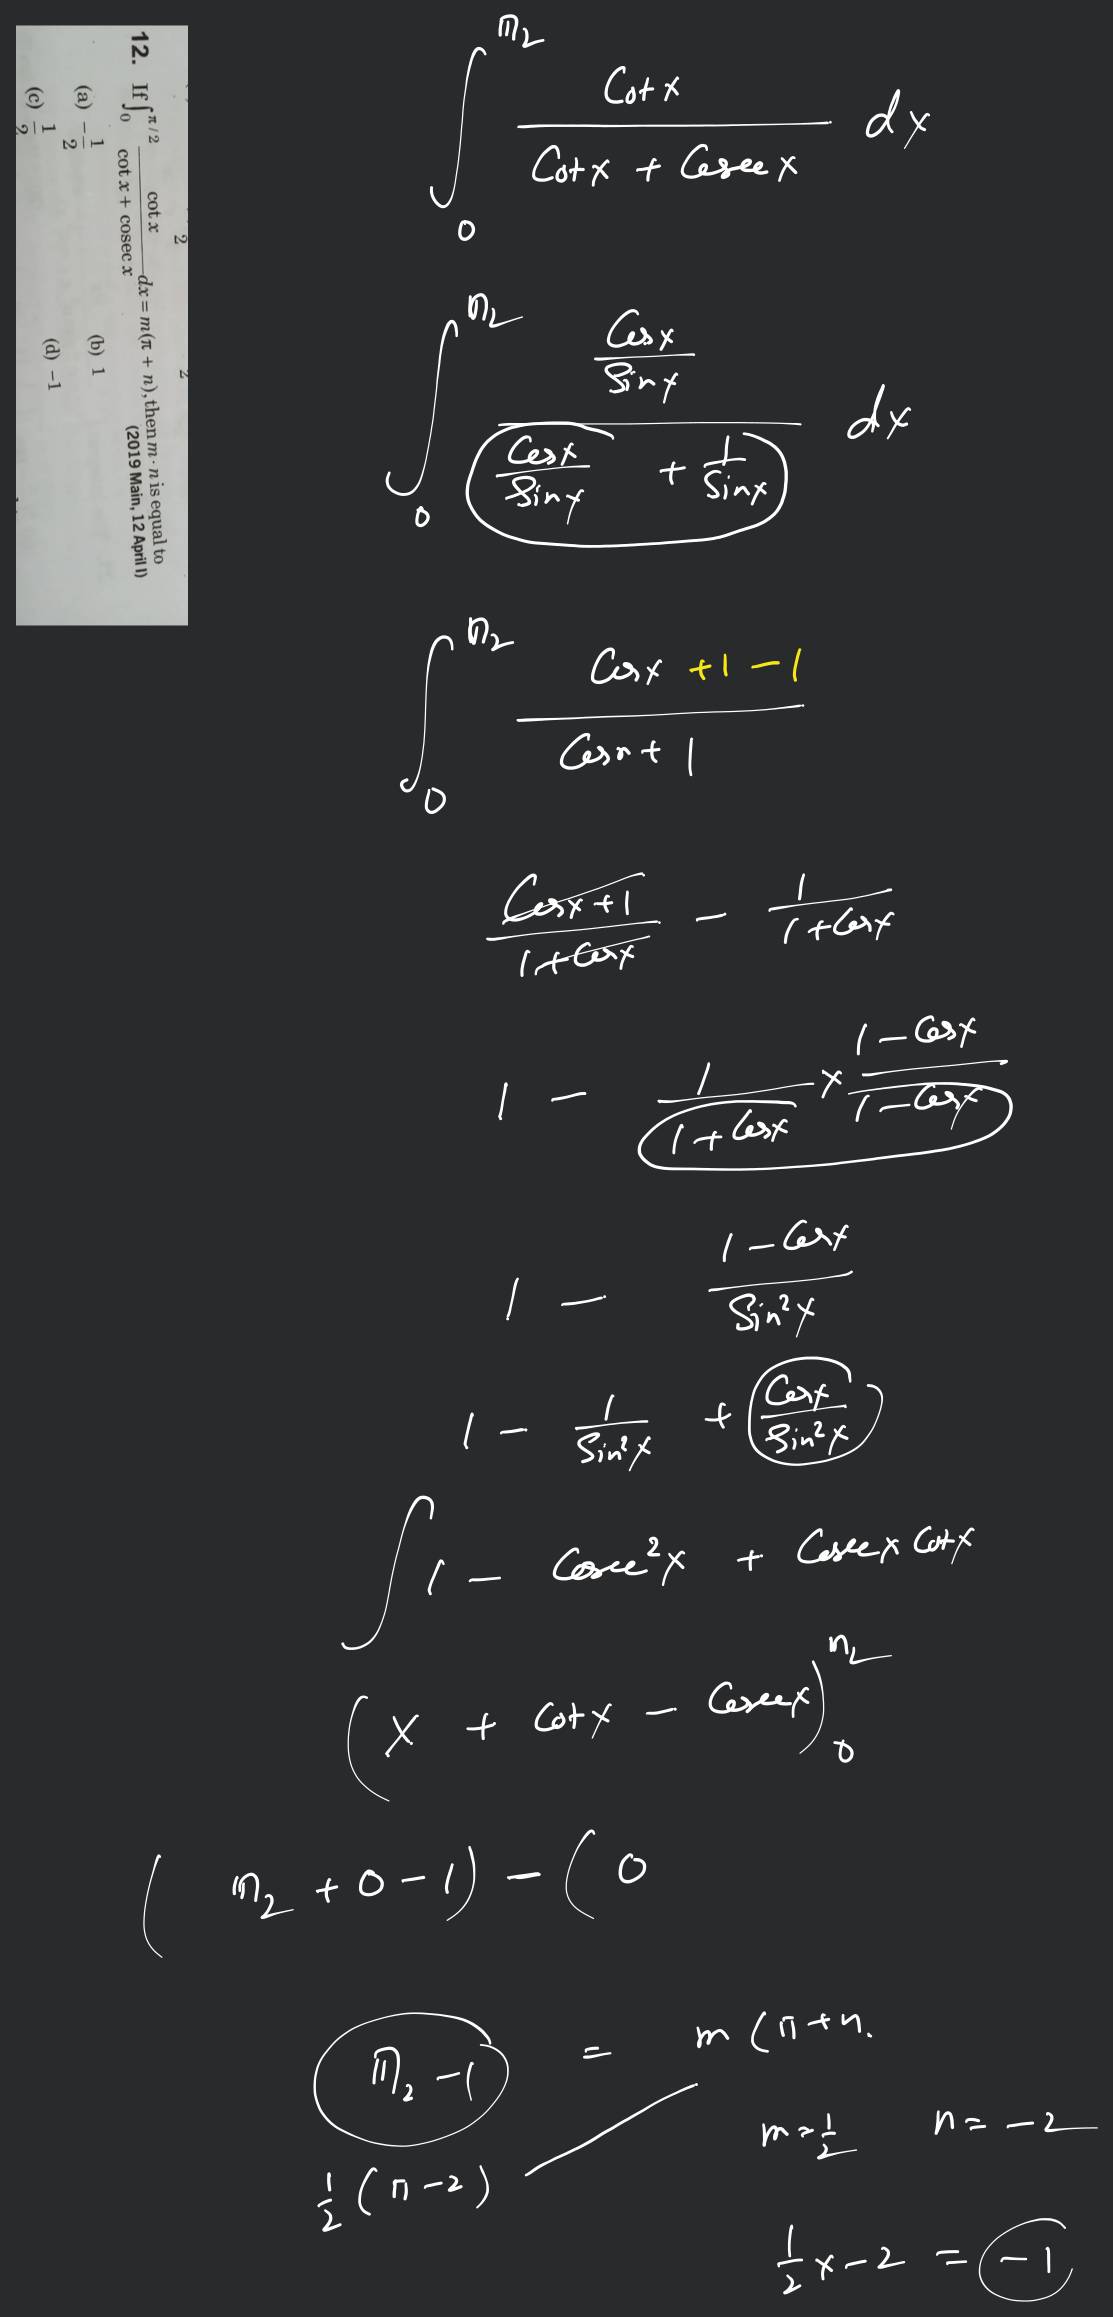 2 2
12. If ∫₀^{π/2} cot x / (cot x + cosec x) dx = m(π + n), then m · n is equal to
(2019 Main, 12 April I)
(a) -1/2 (b) 1
(c) 1/2 (d) -1
∫₀^{π/2} Cot x / (Cot x + Cosec x) dx
∫₀^{π/2} (Cos x / Sin x) / (Cos x / Sin x + 1 / Sin x) dx
∫₀^{π/2} (Cos x +1 -1) / (Cos x + 1)
(Cos x + 1) / (1 + Cos x) - 1 / (1 + Cos x)
1 - 1 / (1 + Cos x) × (1 - Cos x) / (1 - Cos x)
1 - (1 - Cos x) / Sin² x
1 - 1 / Sin² x + Cos x / Sin² x
∫ 1 - Cosec² x + Cosec x Cot x
(x + Cot x - Cosec x)₀^{π/2}
(π/2 + 0 - 1) - (0
π/2 - 1 = m (π + n.
1/2 (π - 2)
m = 1/2 n = -2
1/2 x - 2 = -1